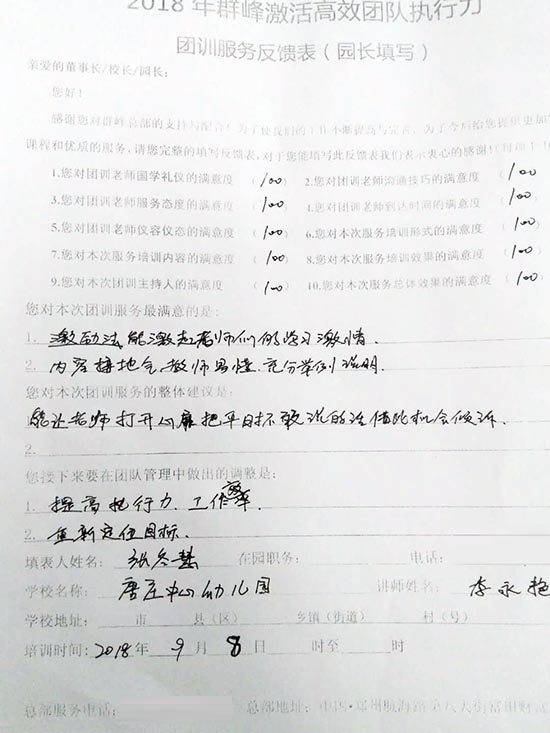 2018年群峰激活高效团队执行力
团训服务反馈表（园长填写）
亲爱的董事长/校长/园长：
您好！
感谢您对群峰总部的支持与配合！为了使我们的工作不断提高与完善，为了今后给您提供更加
课程和优质的服务，请您完整的填写反馈表，对于您能填写此反馈表我们表示衷心的感谢！（每项1-10
1.您对团训老师国学礼仪的满意度 （100） 2.您对团训老师沟通技巧的满意度 （100
3.您对团训老师服务态度的满意度 （100） 4.您对团训老师到达时间的满意度 （100
5.您对团训老师仪容仪态的满意度 （100） 6.您对本次服务培训形式的满意度 （100
7.您对本次服务培训内容的满意度 （100） 8.您对本次服务培训效果的满意度 （100
9.您对本次团训主持人的满意度 （100） 10.您对本次服务总体效果的满意度 （100
您对本次团训服务最满意的是：
1. 激励法能激起老师们的学习激情.
2. 内容接地气，教师易懂.充分举例说明.
您对本次团训服务的整体建议是：
能让老师打开心扉把平时不敢说的话借此机会倾诉.
2.
您接下来要在团队管理中做出的调整是：
1. 提高执行力.工作率.
2. 重新定位目标.
填表人姓名： 张冬慧 在园职务： 电话：
学校名称： 唐庄中心幼儿园 讲师姓名： 李永艳
学校地址： 市 县（区） 乡镇（街道） 村（号）
培训时间：2018年 9 月 8 日 时至 时
总部服务电话： 总部地址：中国·郑州航海路第八大街富田财富